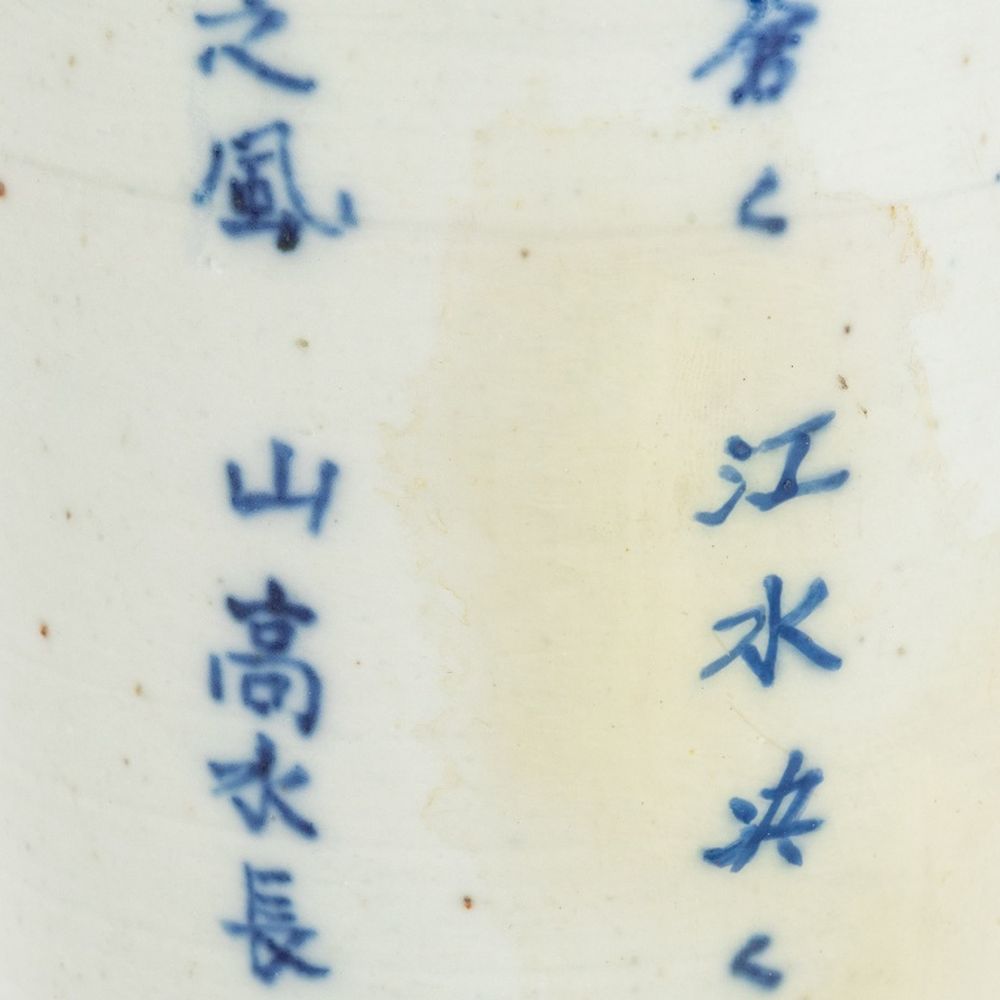 蒼く
江水泱く
之風
山高水長